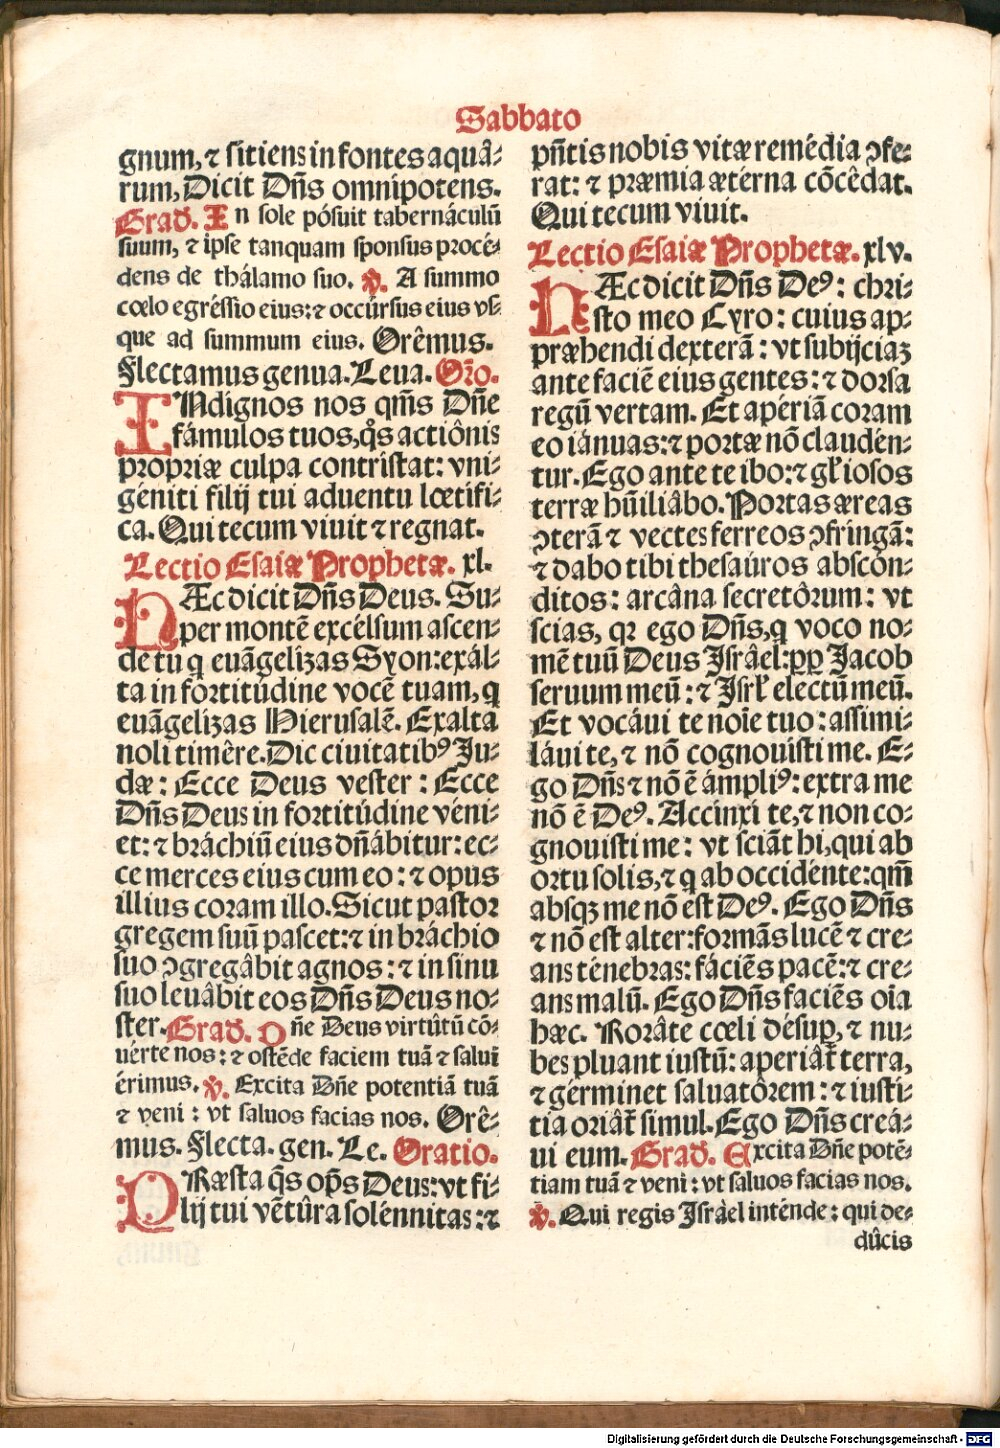 Sabbato
gnum, ⁊ sitiens in fontes aquâ⸗
rum, Dicit Dñs omnipotens.
Grad. In sole pósuit tabernáculũ
suum, ⁊ ipse tanquam sponsus procé⸗
dens de thálamo suo. ℣. A summo
cœlo egréssio eius: ⁊ occúrsus eius vs⸗
que ad summum eius. Orêmus.
Flectamus genua. Leua. Oŕo.
INdignos nos qm̃s Dñe
fámulos tuos, q̃s actiônis
propriæ culpa contristat: vni⸗
géniti filij tui aduentu lœtifi⸗
ca. Qui tecum viuit ⁊ regnat.
Lectio Esaiæ Prophetæ. xl.
HÆc dicit Dñs Deus. Su⸗
per montẽ excélsum ascen⸗
de tu q̃ euãgelizas Syon: exál⸗
ta in fortitúdine vocẽ tuam, q̃
euãgelizas Hierusalẽ. Exalta
noli timêre. Dic ciuitatibꝰ Ju⸗
dæ: Ecce Deus vester: Ecce
Dñs Deus in fortitúdine véni⸗
et: ⁊ bráchiũ eius dñábitur: ec⸗
ce merces eius cum eo: ⁊ opus
illius coram illo. Sicut pastor
gregem suũ pascet: ⁊ in bráchio
suo ↄgregâbit agnos: ⁊ in sinu
suo leuâbit eos Dñs Deus no⸗
ster. Grad. Dñe Deus virtûtũ cõ⸗
uérte nos: ⁊ ostẽde faciem tuã ⁊ salui
érimus. ℣. Excita Dñe potentiã tuã
⁊ veni: vt saluos facias nos. Orê⸗
mus. Flecta. gen. Le. Oratio.
PRæsta q̃s op̃s Deus: vt fi⸗
lij tui vẽtûra solénnitas: ⁊
pñtis nobis vitæ remédia ↄfe⸗
rat: ⁊ præmia ætérna cõcêdat.
Qui tecum viuit.
Lectio Esaiæ Prophetæ. xlv.
HÆc dicit Dñs Deꝰ: chri⸗
sto meo Cyro: cuius ap⸗
præhendi dexterã: vt subijciaz
ante faciẽ eius gentes: ⁊ dorsa
regũ vertam. Et apériã coram
eo iánuas: ⁊ portæ nõ clauden⸗
tur. Ego ante te ibo: ⁊ gl'iosos
terræ hũiliâbo. Portas æreas
ↄterã ⁊ vectes ferreos ↄfringã:
⁊ dabo tibi thesaúros abscón⸗
ditos: arcâna secretôrum: vt
scias, qꝛ ego Dñs, q̃ voco no⸗
mẽ tuũ Deus Jsrâel: ꝓp Jacob
seruum meũ: ⁊ Jsrl' electũ meũ.
Et vocáui te noĩe tuo: assimi⸗
láui te, ⁊ nõ cognouisti me. E⸗
go Dñs ⁊ nõ ẽ ámpliꝰ: extra me
nõ ẽ Deꝰ. Accinxi te, ⁊ non co⸗
gnouisti me: vt sciãt hi, qui ab
ortu solis, ⁊ q̃ ab occidénte: qm̃
absqꝫ me nõ est Deꝰ. Ego Dñs
⁊ nõ est alter: formãs lucẽ ⁊ cre⸗
ans ténebras: fáciẽs pacẽ: ⁊ cre⸗
ans malũ. Ego Dñs faciẽs oĩa
hæc. Rorâte cœli désuꝑ, ⁊ nu⸗
bes pluant iustũ: aperiãt terra,
⁊ gérminet saluatôrem: ⁊ iusti⸗
tia oriãt simul. Ego Dñs creá⸗
ui eum. Grad. Excita Dñe potẽ⸗
tiam tuã ⁊ veni: vt saluos facias nos.
℣. Qui regis Jsràel inténde: qui de⸗
dûcis
Digitalisierung gefördert durch die Deutsche Forschungsgemeinschaft - DFG